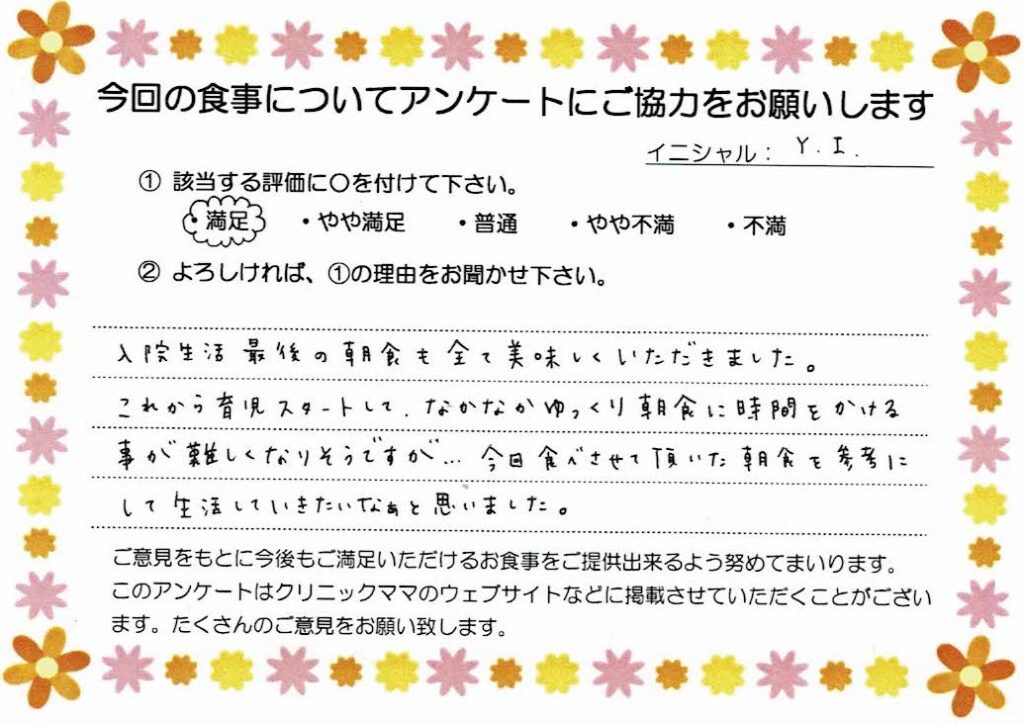 今回の食事についてアンケートにご協力をお願いします
イニシャル： Y. I.
① 該当する評価に〇を付けて下さい。
・満足 ・やや満足 ・普通 ・やや不満 ・不満
② よろしければ、①の理由をお聞かせ下さい。
入院生活最後の朝食も全て美味しくいただきました。
これから育児スタートして、なかなかゆっくり朝食に時間をかける
事が難しくなりそうですが… 今回食べさせて頂いた朝食を参考に
して生活していきたいなぁと思いました。
ご意見をもとに今後もご満足いただけるお食事をご提供出来るよう努めてまいります。
このアンケートはクリニックママのウェブサイトなどに掲載させていただくことがござい
ます。たくさんのご意見をお願い致します。